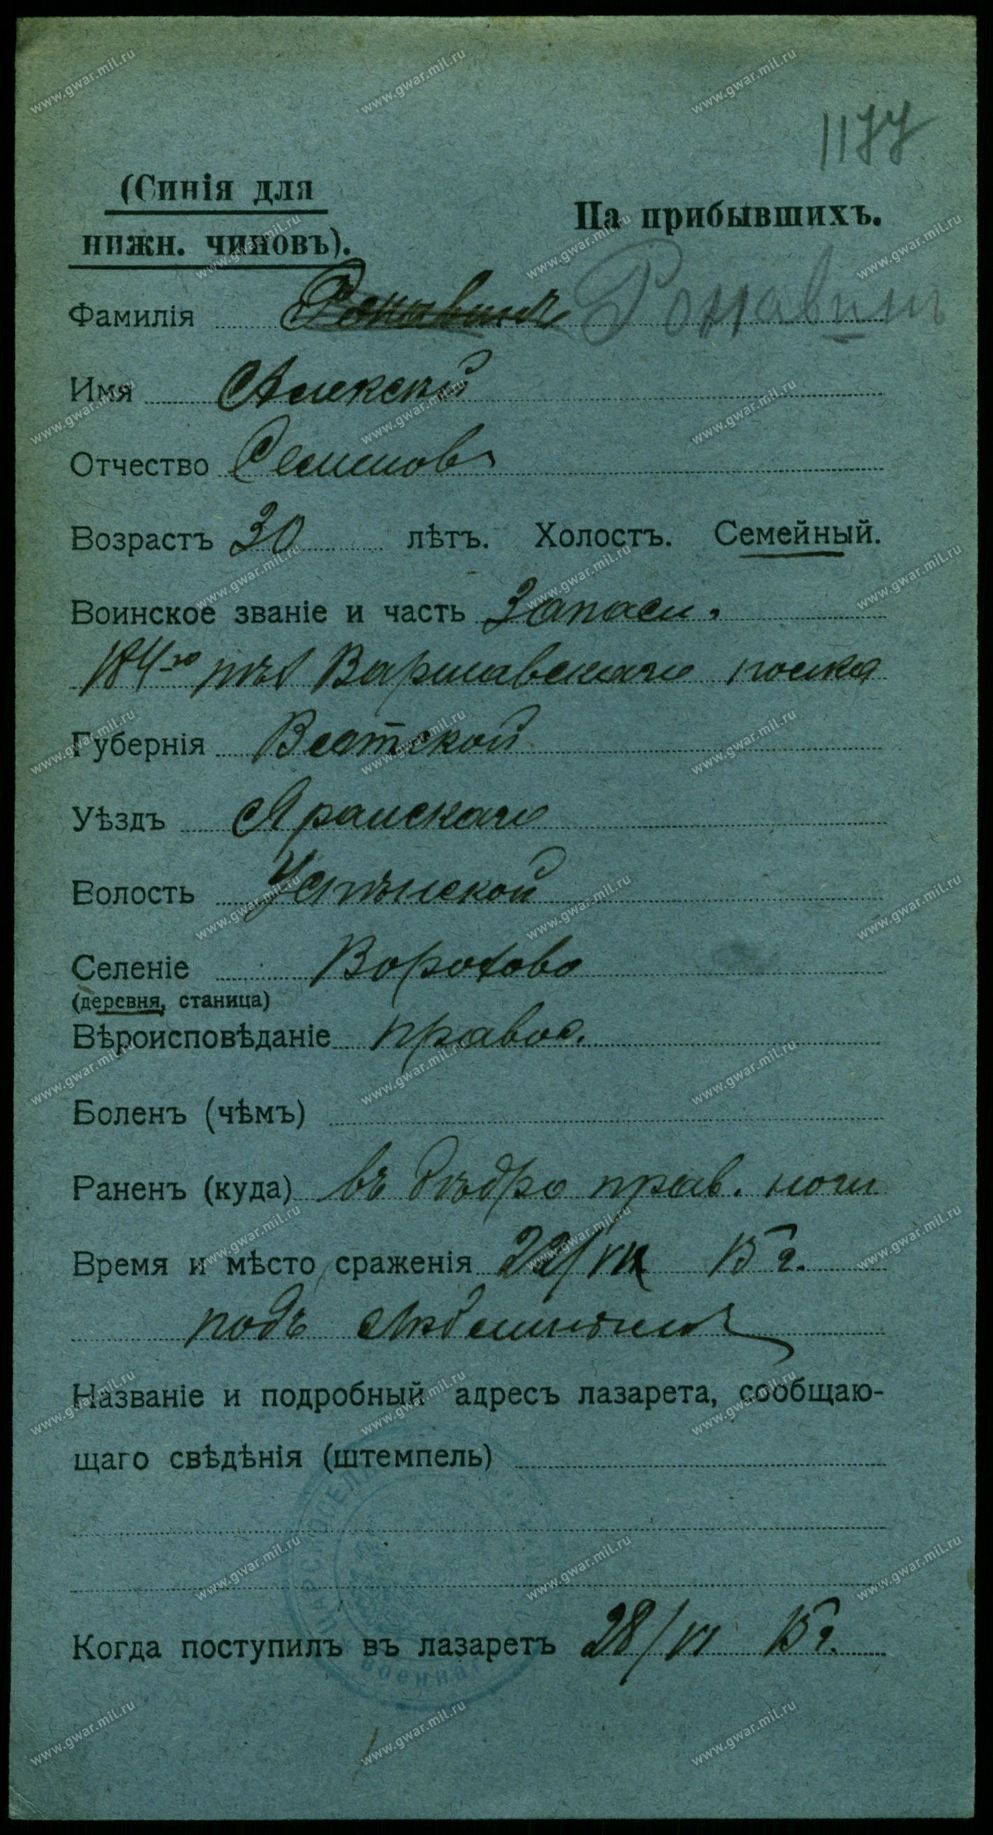 1177
(Синія для
нижн. чиновъ).
На прибывшихъ.
Фамилія Ронавинъ Ронавинъ
Имя Алексѣй
Отчество Семенов
Возрастъ 30 лѣтъ. Холостъ. Семейный.
Воинское званіе и часть Запасн.
184го пѣх Варшавскаго полка
Губернія Вятской
Уѣздъ Яранскаго
Волость
Селеніе
(деревня, станица)
Вѣроисповѣданіе правос.
Боленъ (чѣмъ)
Раненъ (куда) въ бедро прав. ноги
Время и мѣсто сраженія 22/VI 15 г.
подъ
Названіе и подробный адресъ лазарета, сообщаю-
щаго свѣдѣнія (штемпель)
ЦАРСКОСЕЛ
Военна
Когда поступилъ въ лазаретъ 28/VI 15 г.
www.gwar.mil.ru